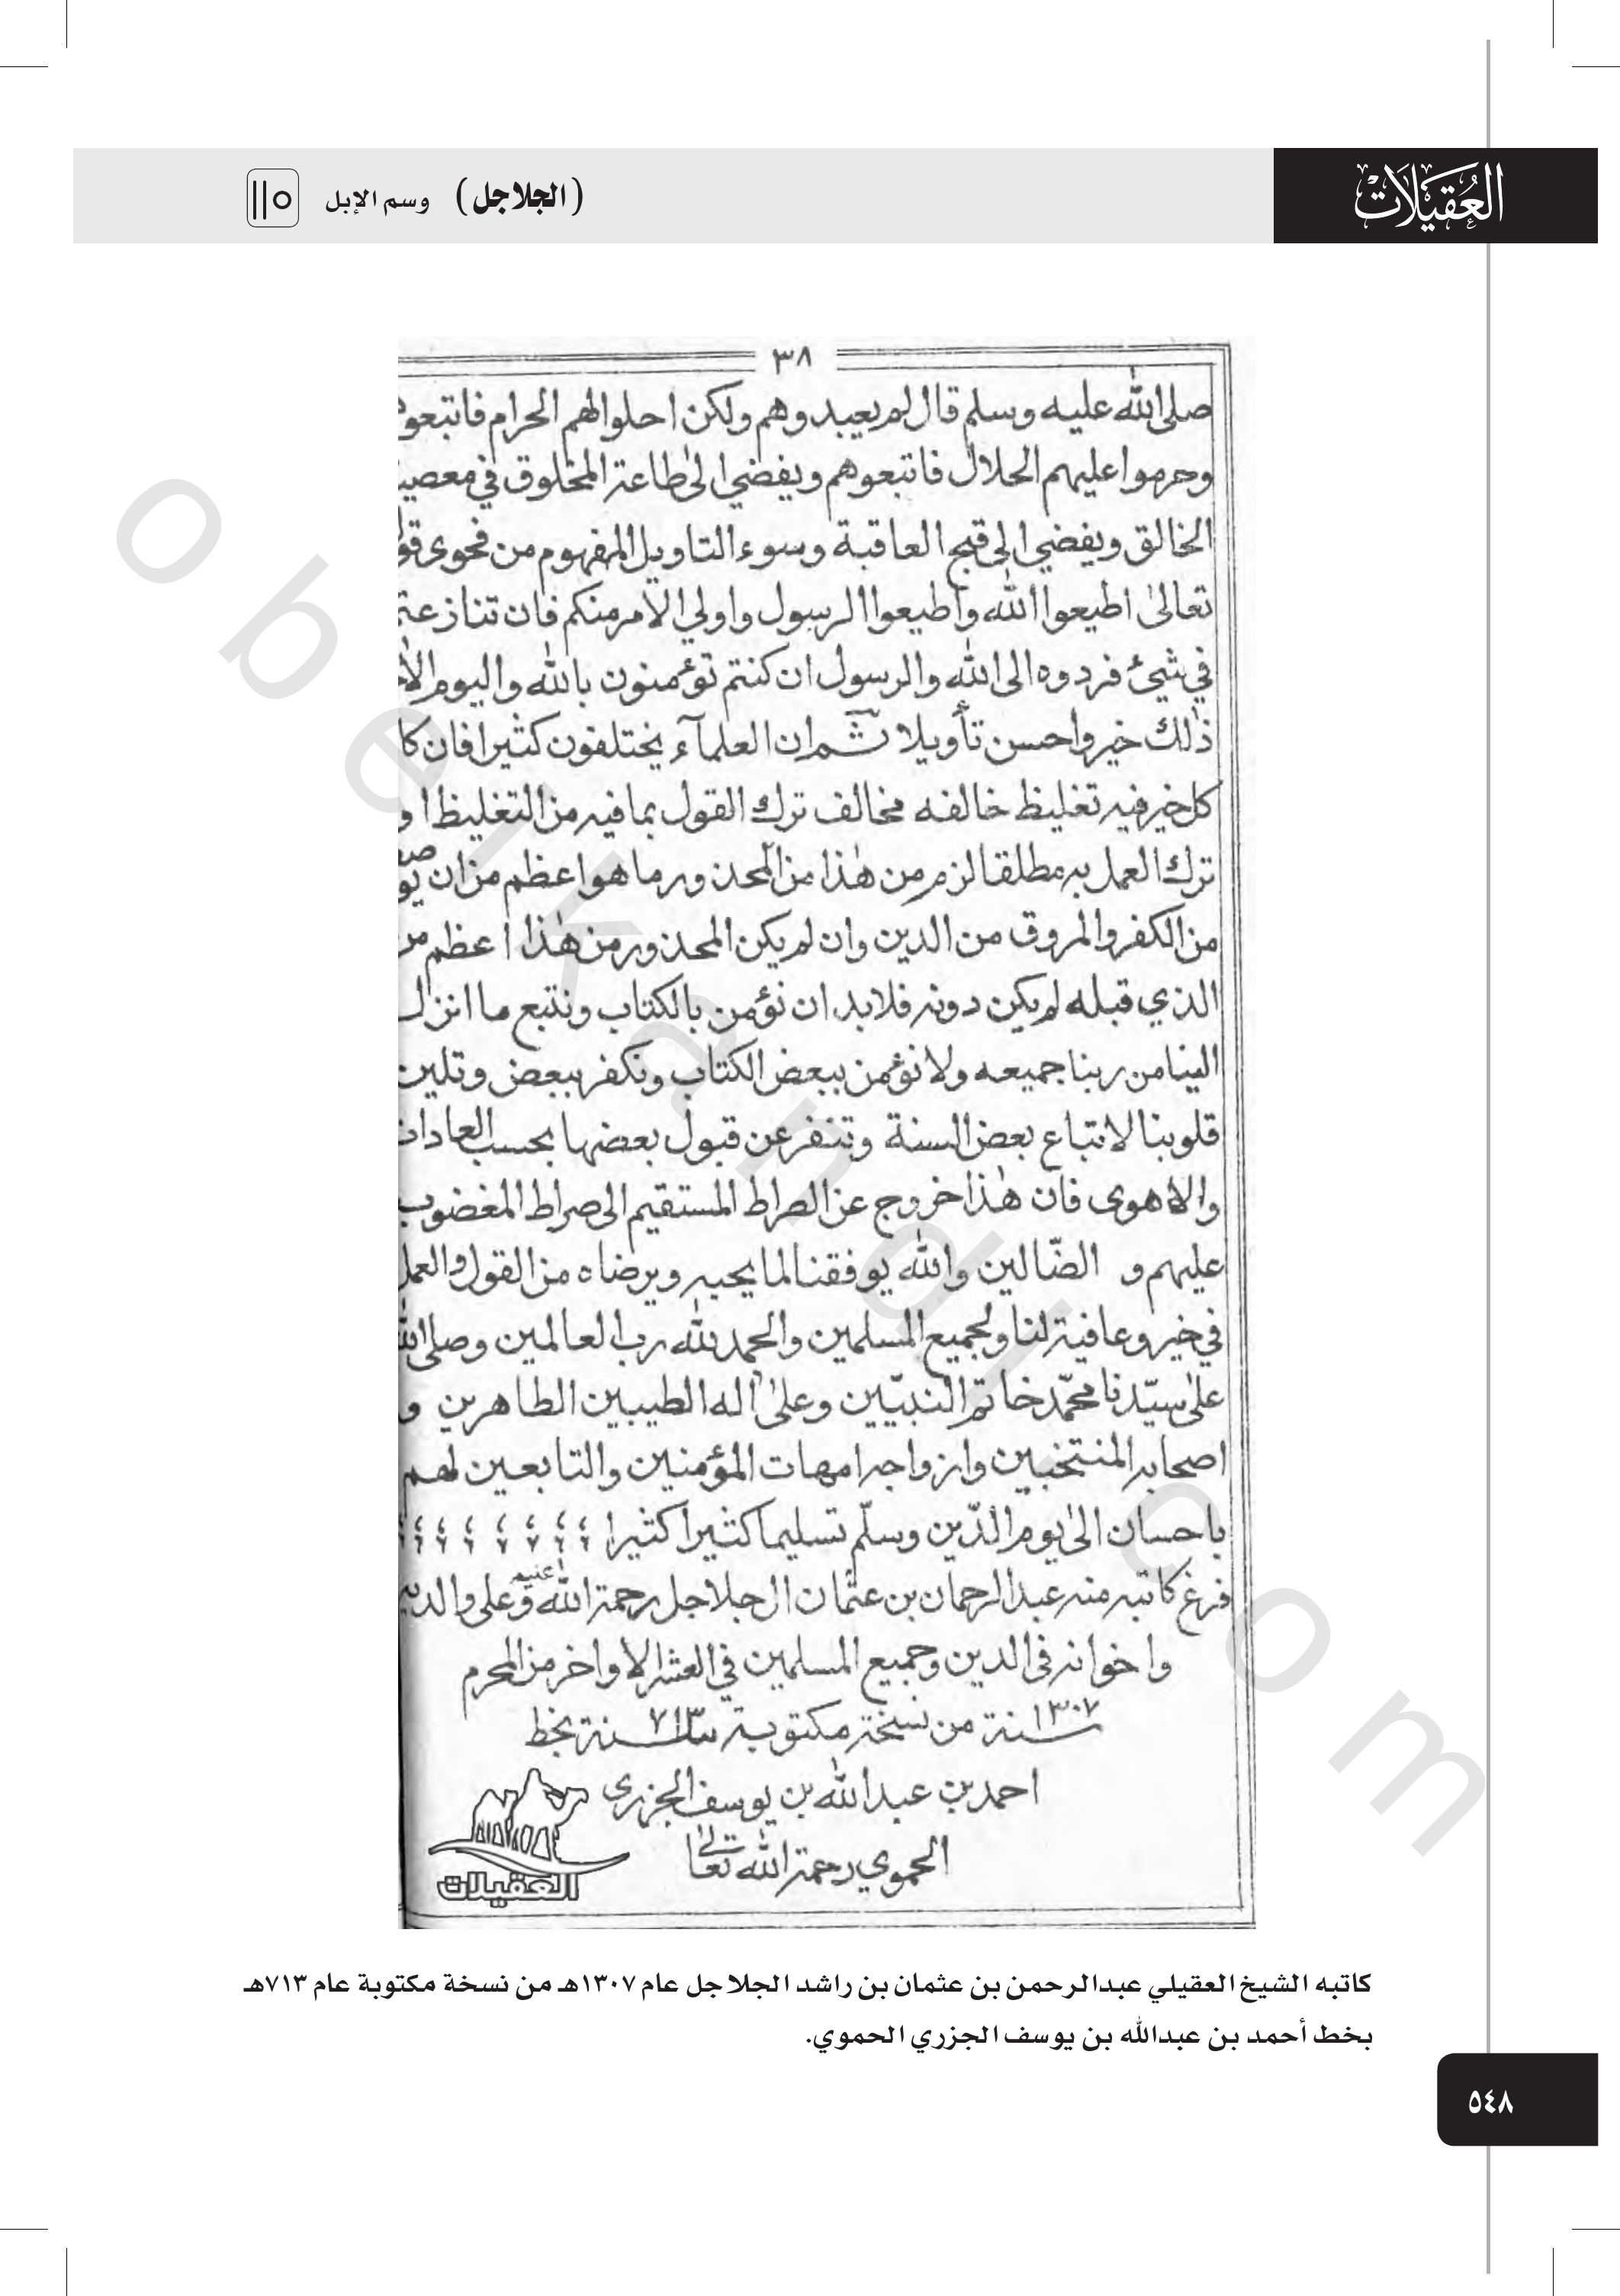 العُقَيْلَاتْ
(الجلاجل) وسم الإبل
٣٨
صلى الله عليه وسلم قال لم يعبدوهم ولكن احلوا لهم الحرام فاتبعو
وحرموا عليهم الحلال فاتبعوهم ويفضي الى طاعة المخلوق في معصية
الخالق ويفضي الى قبح العاقبة وسوء التاويل المفهوم من فحوى قو
تعالى اطيعوا الله واطيعوا الرسول واولي الامر منكم فان تنازعتم
في شيئ فردوه الى الله والرسول ان كنتم تؤمنون بالله واليوم الاخ
ذلك خير واحسن تأويلا ثم ان العلمآء يختلفون كثيرا فان كا
كل خبر فيه تغليظ خالفه مخالف ترك القول بما فيه من التغليظ او
ترك العمل به مطلقا لزم من هذا من المحذور ما هو اعظم من ان يوصف
من الكفر والمروق من الدين وان لم يكن المحذور من هذا اعظم من
الذي قبله لم يكن دونه فلا بد ان نؤمن بالكتاب ونتبع ما انزل
الينا من ربنا جميعه ولا نؤمن ببعض الكتاب ونكفر ببعض وتلين
قلوبنا لاتباع بعض السنة وتنفر عن قبول بعضها بحسب العادات
والاهوى فان هذا خروج عن الصراط المستقيم الى صراط المغضوب
عليهم و الضّالين والله يوفقنا لما يحبه ويرضاه من القول والعمل
في خير وعافية لنا ولجميع المسلمين والحمد لله رب العالمين وصلى الله
على سيّدنا محمّد خاتم النبيّين وعلى آله الطيبين الطاهرين و
اصحابه المنتخبين وازواجه امهات المؤمنين والتابعين لهم
باحسان الى يوم الدّين وسلّم تسليما كثيرا كثيرا
فرغ كاتبه منه عبد الرحمان بن عثمان ال جلاجل رحمة الله عليه وعلى والديه
واخوانه فى الدين وجميع المسلمين في العشر الاواخر من المحرم
١٣٠٧ سنة من نسخة مكتوبة سنة ٧١٣ بخط
احمد بن عبد الله بن يوسف الجزرى
الحموي رحمة الله تعالى
العقيلات
كاتبه الشيخ العقيلي عبدالرحمن بن عثمان بن راشد الجلاجل عام ١٣٠٧هـ من نسخة مكتوبة عام ٧١٣هـ
بخط أحمد بن عبدالله بن يوسف الجزري الحموي.
٥٤٨
obeikandi.com